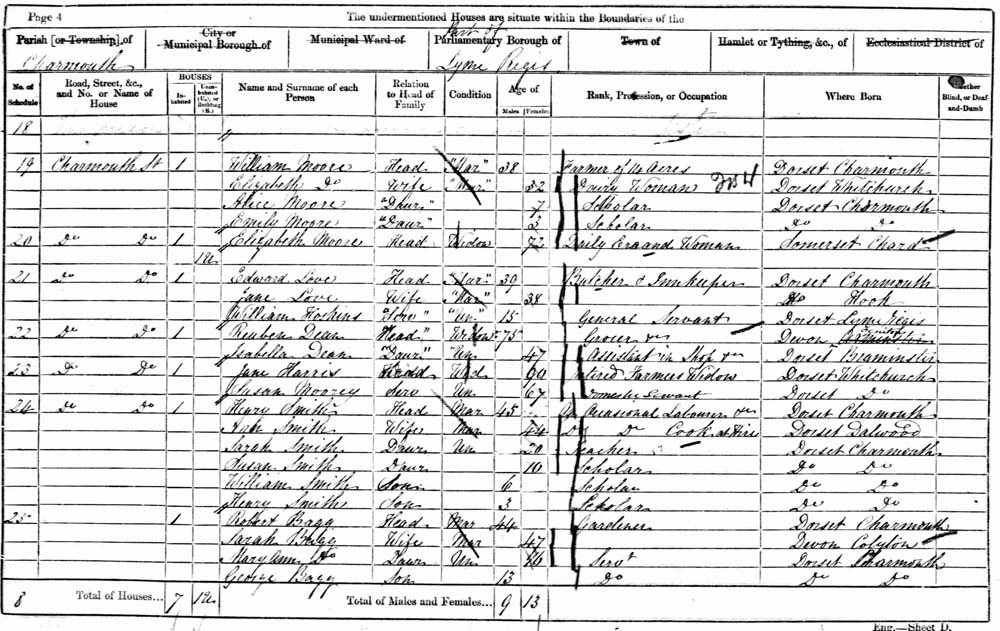 Page 4
The undermentioned Houses are situate within the Boundaries of the
Parish [or Township] of
City or Municipal Borough of
Municipal Ward of
Part of
Parliamentary Borough of
Town of
Hamlet or Tything, &c., of
Ecclesiastical District of
Charmouth
Lyme Regis
No. of Schedule
Road, Street, &c., and No. or Name of House
HOUSES
Inhabited
Uninhabited (U.), or Building (B.)
Name and Surname of each Person
Relation to Head of Family
Condition
Age of
Males
Females
Rank, Profession, or Occupation
Where Born
Whether Blind, or Deaf-and-Dumb
18 "
19 Charmouth St 1 William Moore Head "Mar" 38 Farmer of 14 Acres Dorset Charmouth
Elizabeth Do Wife "Mar" 32 Dairy Woman Dorset Whitchurch
Alice Moore "Daur" 7 Scholar Dorset Charmouth
Emily Moore "Daur" 3 Scholar Do Do
20 Do Do 1 Elizabeth Moore Head Widow 72 Daily Errand Woman Somerset Chard
1 U
21 Do Do 1 Edward Love Head "Mar" 39 Butcher & Innkeeper Dorset Charmouth
Jane Love Wife "Mar" 38 Do Hook
William Hoskins "Serv" "Un" 15 General Servant Dorset Lyme Regis
22 Do Do 1 Reuben Dean "Head" Widowr 75 Grocer Devon
Isabella Dean "Daur" "Un 47 Assistant in Shop Dorset Beaminster
23 Do Do 1 Jane Harris Head Wid Retired Farmers Widow Dorset Whitchurch
Susan Moorey Serv Un 67 Domestic Servant Dorset Do
24 Do Do 1 Henry Smith Head Mar 45 Occasional Labourer Dorset Charmouth
Ann Smith Wife Mar 44 Do Do Cook at Hire Dorset Dalwood
Sarah Smith Daur Un 20 Teacher Dorset Charmouth
Susan Smith Daur 10 Scholar Do Do
William Smith Son 6 Scholar Do Do
Henry Smith Son 3 Scholar Do Do
25 1 Robert Bagg Head Mar 44 Gardiner Dorset Charmouth
Sarah Bagg Wife Mar 47 Devon Colyton
Mary Ann Do Daur Un Servt Dorset Charmouth
George Bagg Son 13 Do Do Do
8 Total of Houses... 7 1 U Total of Males and Females... 9 13
Eng.—Sheet D.